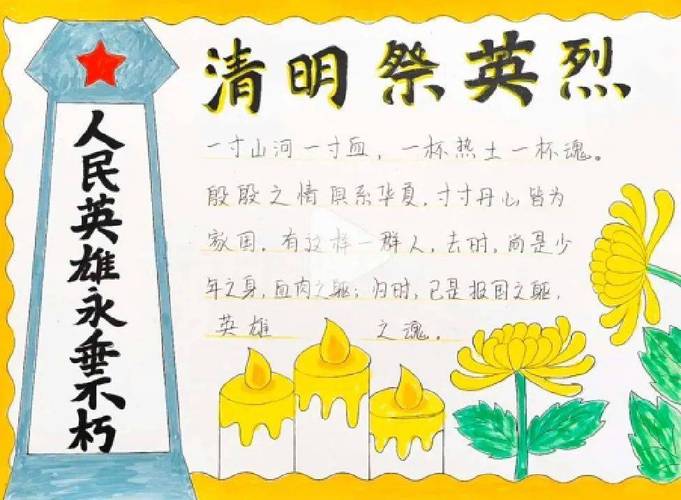 清明祭英烈
人民英雄永垂不朽
一寸山河一寸血，一杯热土一杯魂。
殷殷之情俱系华夏，寸寸丹心皆为
家国。有这样一群人，去时，尚是少
年之身，血肉之躯；归时，已是报国之躯，
英雄之魂。